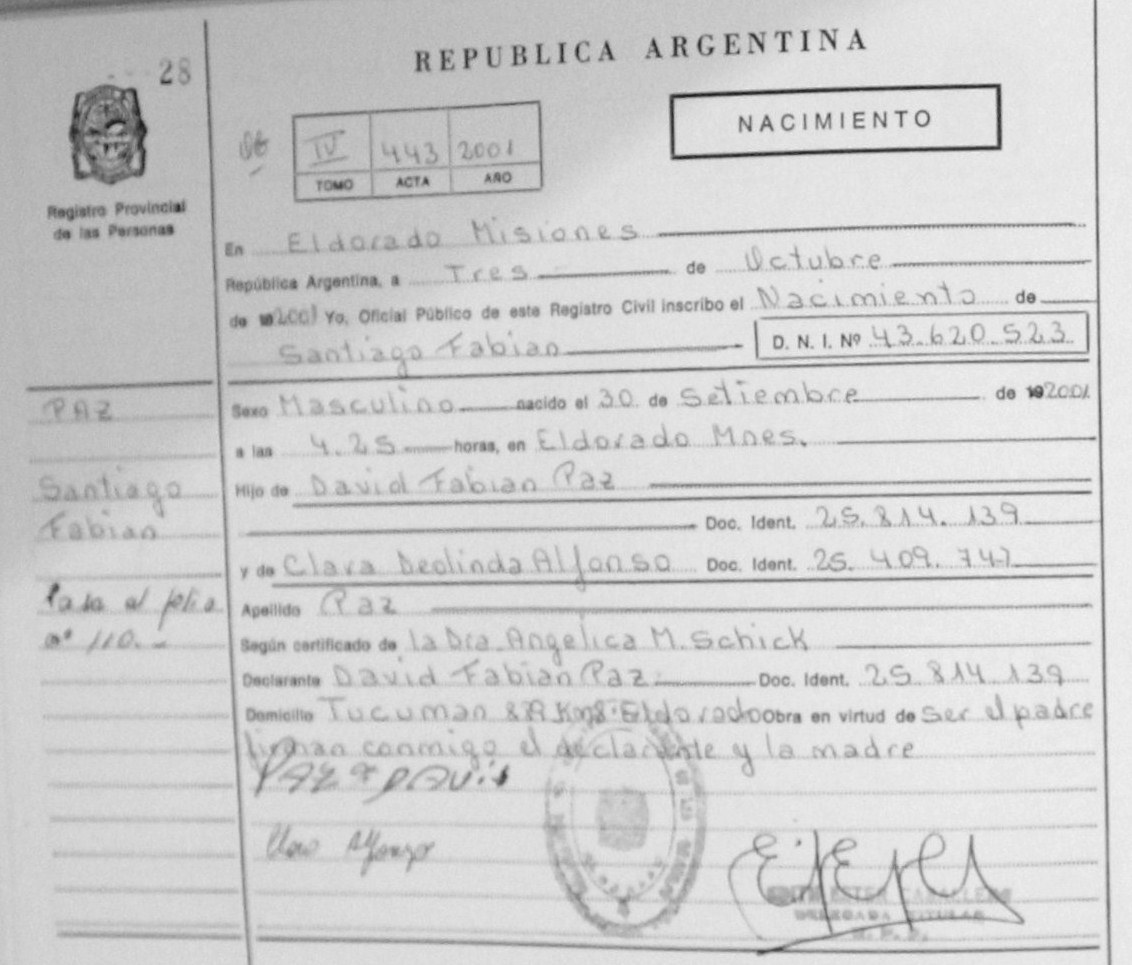 28
REPUBLICA ARGENTINA
NACIMIENTO
IV 443 2001
TOMO ACTA AÑO
Registro Provincial
de las Personas
En Eldorado Misiones
República Argentina, a Tres de Octubre
de 2001 Yo, Oficial Público de este Registro Civil inscribo el Nacimiento de
Santiago Fabian D. N. I. Nº 43.620.523
PAZ
Santiago
Fabian
Pasa al folio
nº 110.-
Sexo Masculino nacido el 30 de Setiembre de 192001
a las 4.25 horas, en Eldorado Mnes.
Hijo de David Fabian Paz
Doc. Ident. 25.814.139
y de Clara Deolinda Alfonso Doc. Ident. 25.409.742
Apellido Paz
Según certificado de la Dra. Angelica M. Schick
Declarante David Fabian Paz Doc. Ident. 25 814 139
Domicilio Tucuman 879 Km8 Eldorado Obra en virtud de Ser el padre
firman conmigo el declarante y la madre
PAZ DAVID
ESTER CABALLERO
DELEGADA TITULAR
R. P. P.